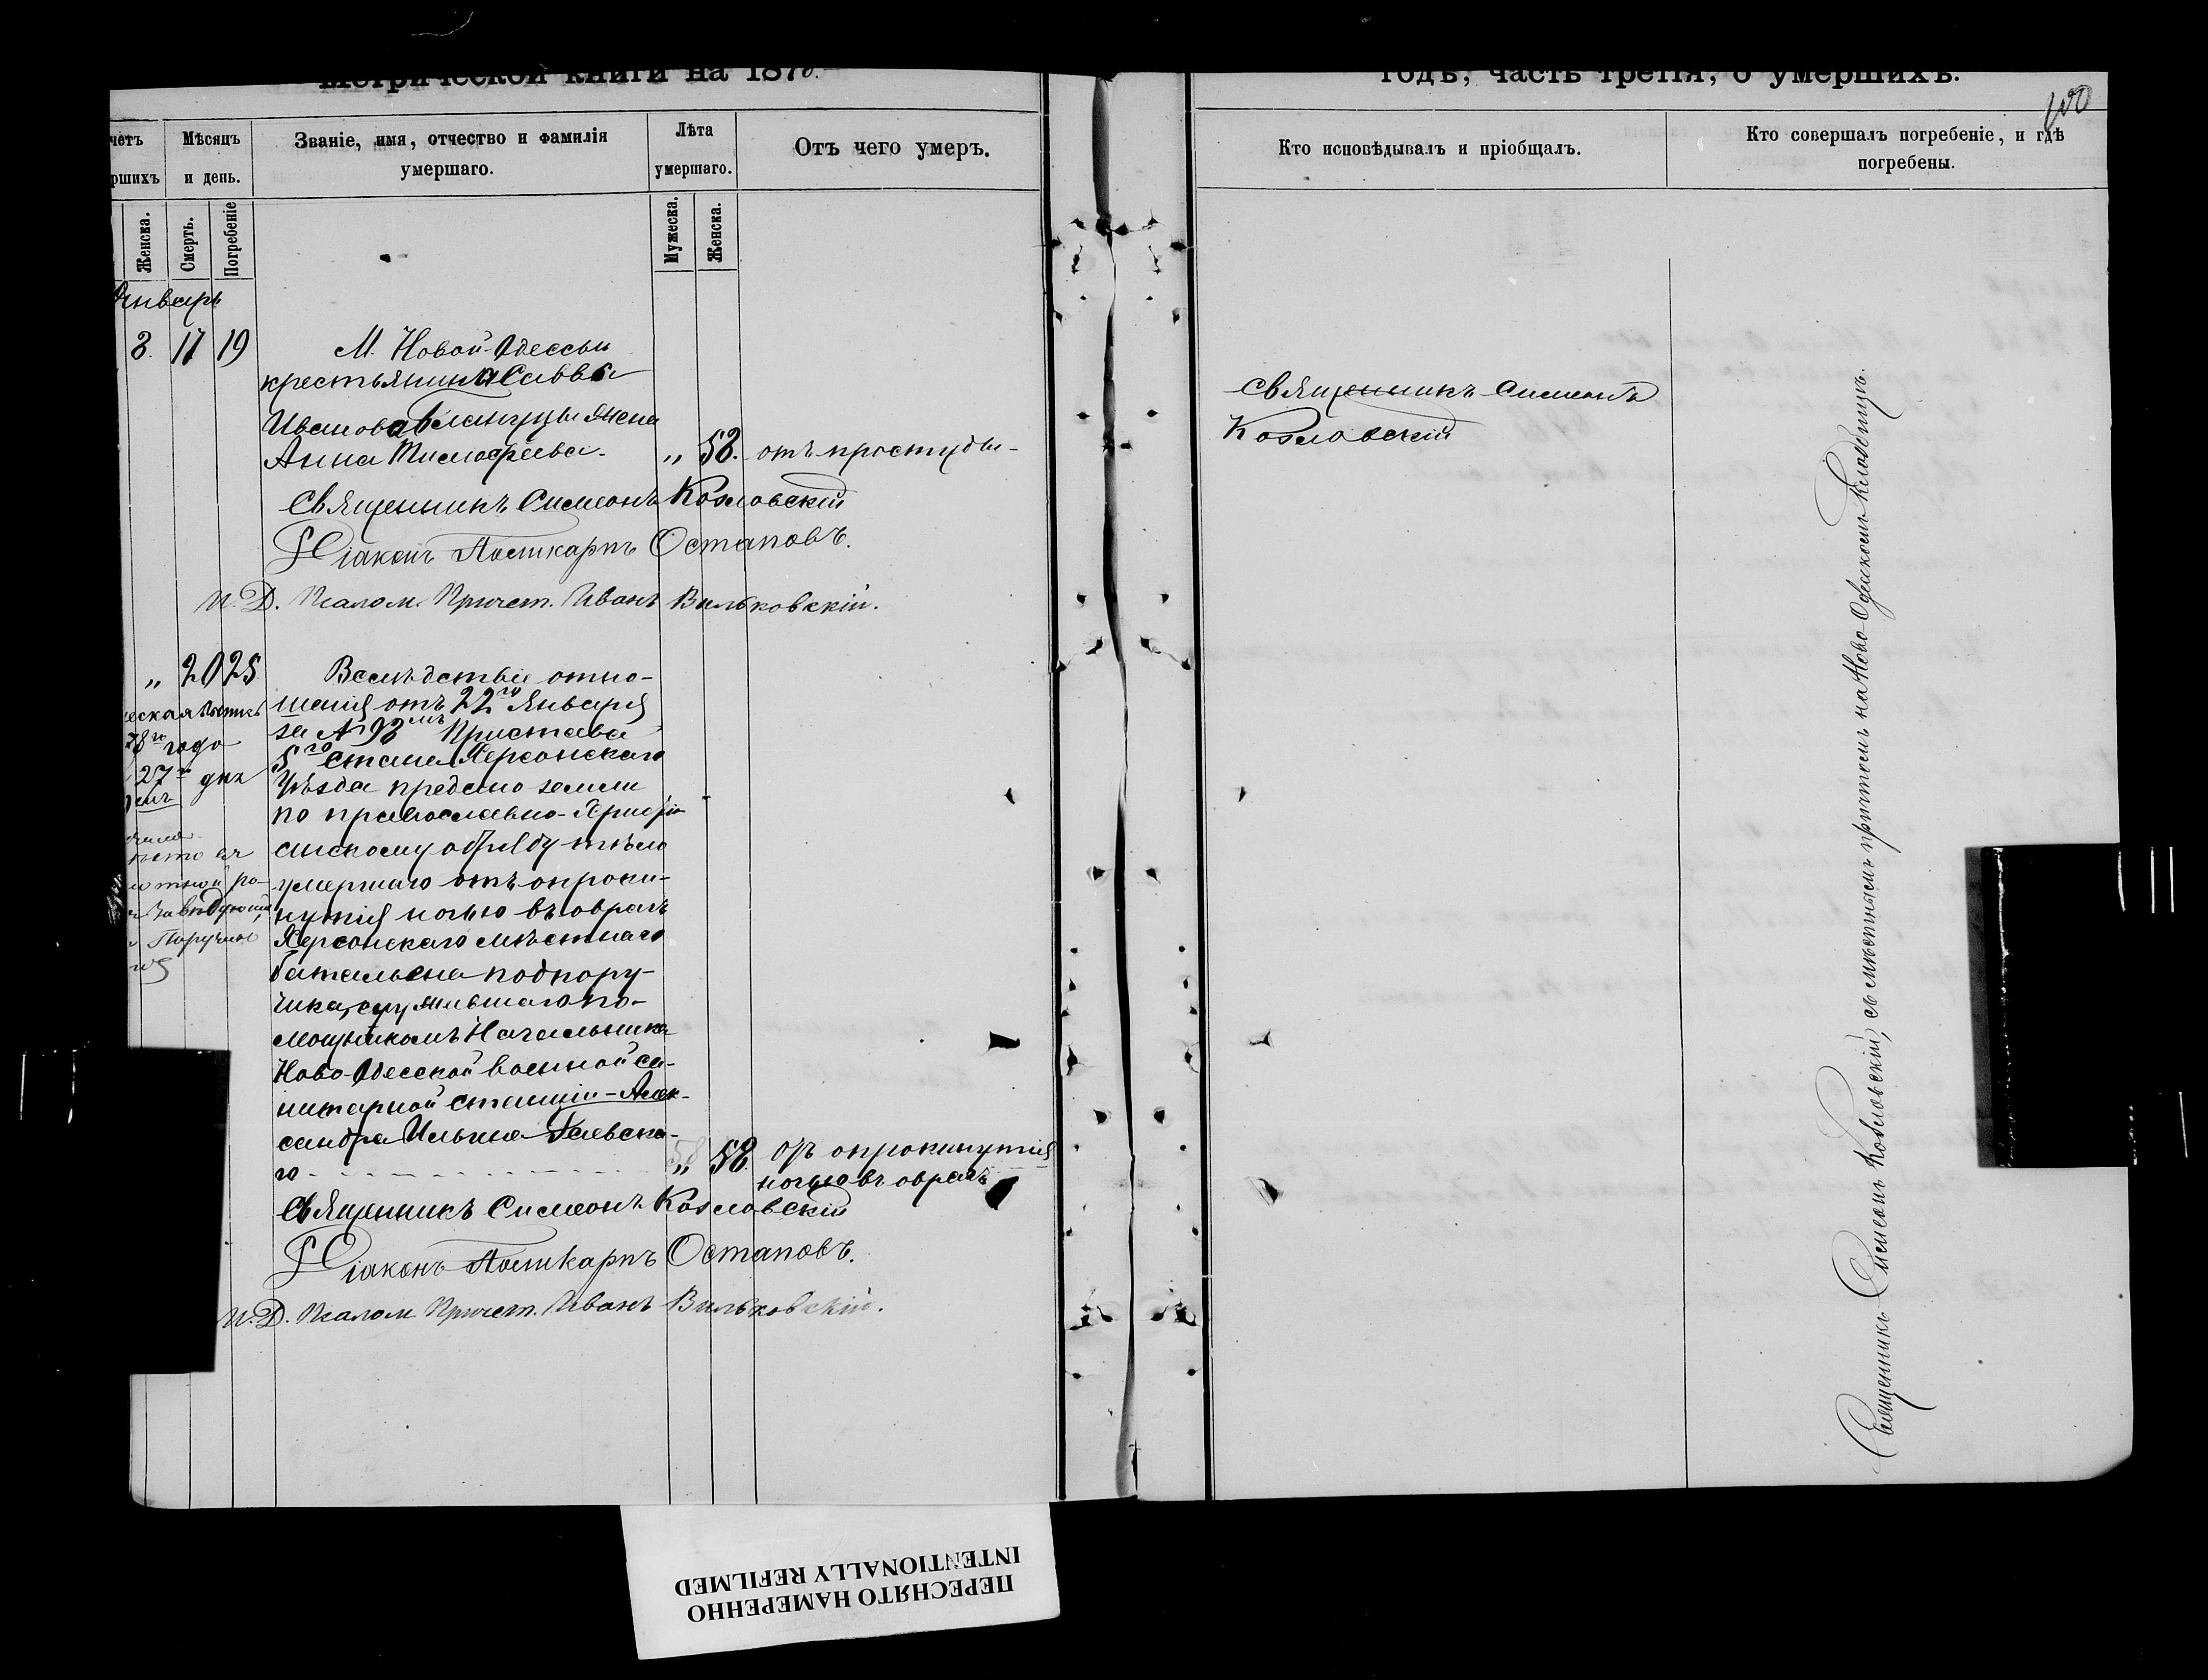 метрической книги на 1878.
годъ, часть третія, о умершихъ.
100
четъ
ршихъ
Мѣсяцъ
и день.
Званіе, имя, отчество и фамилія
умершаго.
Лѣта
умершаго.
Отъ чего умеръ.
Кто исповѣдывалъ и пріобщалъ.
Кто совершалъ погребеніе, и гдѣ
погребены.
Женска.
Смерть.
Погребеніе
Мужеска.
Женска.
Январь
3. 17 19
М. Новой-Одессы
крестьянина Савва
Иванова жена
Анна Тимофеева. „ 58. отъ простуды-
Священникъ Симеонъ
Козловскій
Священникъ Симеонъ Козловскій
Діаконъ Поликарпъ Остаповъ.
И.Д. Псалом. Причет. Иванъ Вильковскій.
„ 20 25
Вслѣдствіе отно-
шенія отъ 22го Января
за № 93мъ Пристава
5го Стана Херсонскаго
Уѣзда предано земли
по православно-Христіа
нскому обряду тѣло
умершаго отъ опроки-
нутія ночью въ оврагъ
Херсонскаго мѣстнаго
батальона подпору-
чика, служившаго по-
мощникомъ Начальника
Ново-Одесской военной са-
нитарной станціи-Алек-
сандра Ильина
го - „ 58. отъ опрокинутія
ночью въ оврагъ
78го года
27го дня
Священникъ Симеонъ Козловскій
Діаконъ Поликарпъ Остаповъ.
И.Д. Псалом Причет. Иванъ Вильковскій.
Священникъ Симеонъ Козловскій, съ мѣстнымъ причтомъ на Ново-Одесскомъ кладбищѣ.
ПЕРЕСНЯТО НАМЕРЕННО
INTENTIONALLY REFILMED